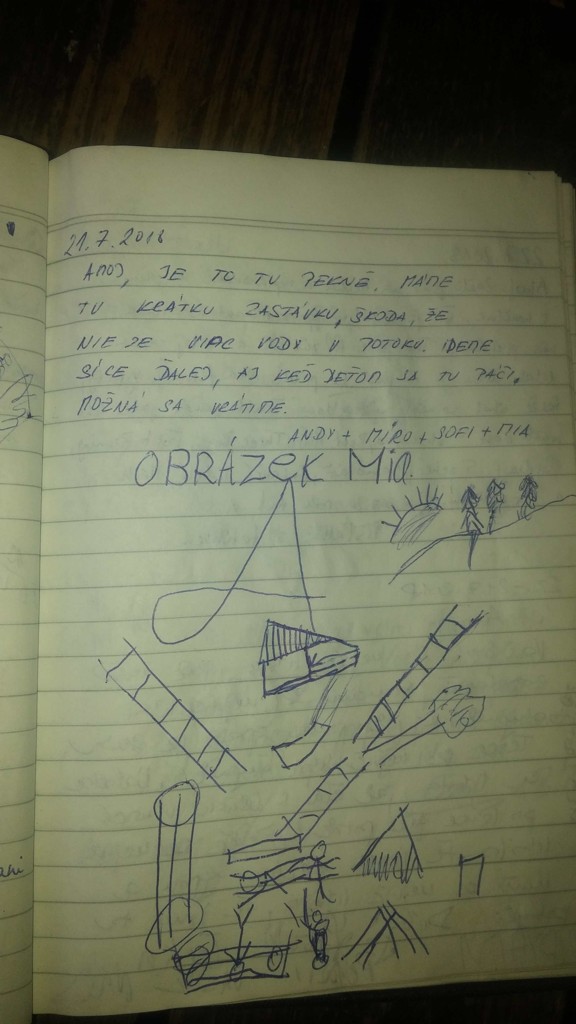 21.7.2018
AHOJ, JE TO TU PEKNÉ. MÁME
TU KRÁTKU ZASTÁVKU, ŠKODA, ŽE
NIE JE VIAC VODY V POTOKU. IDEME
SÍCE ĎALEJ, AJ KEĎ DEŤOM SA TU PÁČI.
MOŽNÁ SA VRÁTIME.
ANDY + MIRO + SOFI + MIA
OBRÁZEK MIA